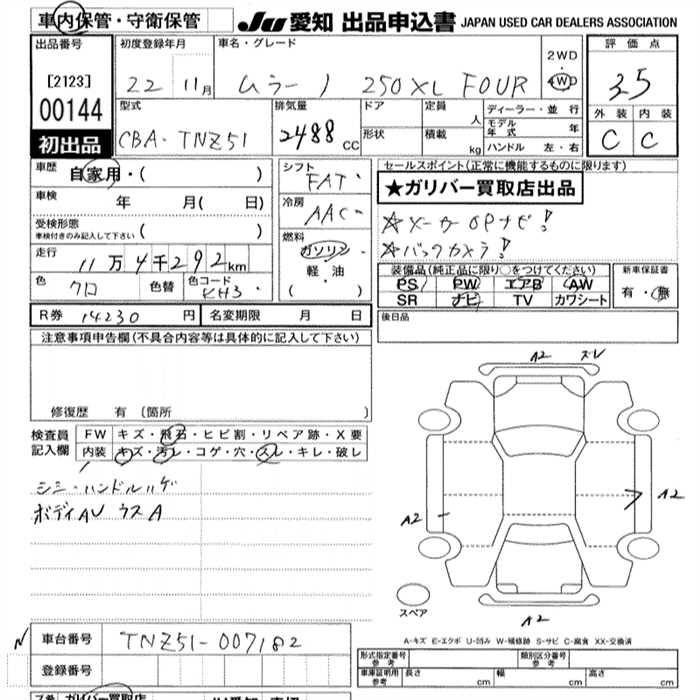 車内保管・守衛保管 JU 愛知 出品申込書 JAPAN USED CAR DEALERS ASSOCIATION
出品番号 初度登録年月 車名・グレード 2WD 評価点
[2123] 22 11月 ムラーノ 250XL FOUR 4WD 3.5
00144 型式 排気量 ドア 定員 人 ディーラー・並行 外装 内装
初出品 CBA-TNZ51 2488 CC 形状 積載 kg モデル年式 年 C C
ハンドル 左・右
車歴 自家用・( ) シフト FAT セールスポイント(正常に機能するものに限ります)
車検 年 月( 日) 冷房 AAC ★ガリバー買取店出品
受検形態 ( ) ☆メーカーOPナビ!
車検付きのみ記入して下さい 燃料 ☆バックカメラ!
走行 11万4千292km ガソリン
軽油 装備品(純正品に限り○をつけてください) 新車保証書
色 クロ 色替 色コード KH3 ・( ) PS PW エアB AW 有・無
SR ナビ TV カワシート
R券 14230円 名変期限 月 日 後日品
注意事項申告欄(不具合内容等は具体的に記入して下さい)
修復歴 有 (箇所 )
検査員 FW キズ・飛石・ヒビ割・リペア跡・X要
記入欄 内装 キズ・汚レ・コゲ・穴・スレ・キレ・破レ
シミ・ハンドルハゲ
ボディAU ウスA
A2 ズレ
A2
A2
A2
スペア
A-キズ E-エクボ U-凹み W-補修跡 S-サビ C-腐食 XX-交換済
車台番号 TNZ51-007182
登録番号
形式指定番号 参考 類別区分番号 参考
車庫証明用 参考 長さ cm 幅 cm 高さ cm
ガリバー買取店 JU愛知